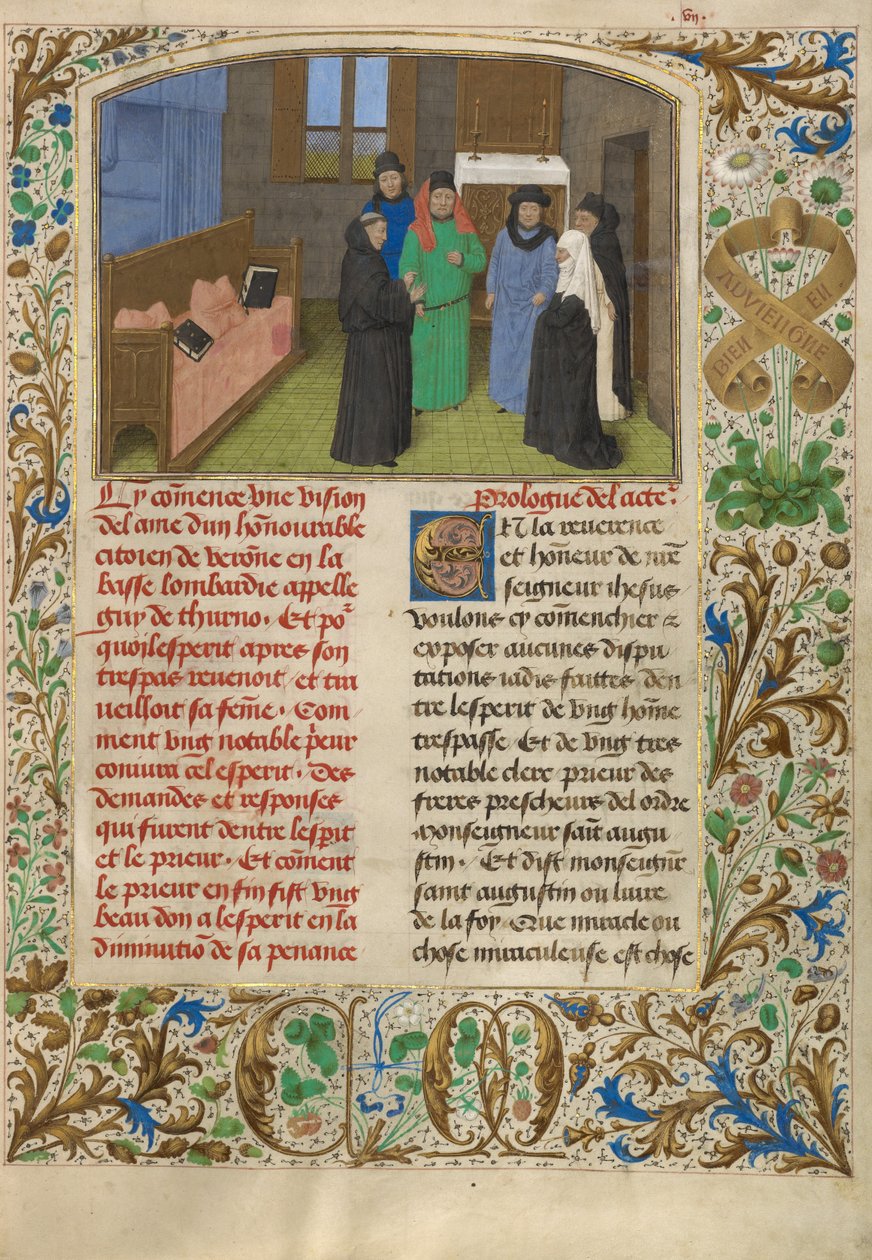 vii
Cy cōmence vne vision
del ame dun hōnourable
citoien de verōne en la
basse lombardie appelle
guy de thurno. Et poʳ
quoy lesperit apres son
trespas reuenoit / et tra
ueilloit sa fēme. Com
ment vng notable p̄eur
coniura cel esperit. Des
demandes et responses
qui furent dentre lesperit
et le prieur. Et cōment
le prieur en fin fist vng
beau don a lesperit en la
diminutiō de sa penance
Prologue del acteʳ
Et la reuerence
et hōneur de nr̄e
seigneur ihesus
voulons cy cōmenchier &
exposer aucunes dispu
tations iadis faittes den
tre lesperit de vng hōme
trespasse / Et de vng tres
notable clerc prieur des
freres prescheurs del ordre
Monseigneur sait̄ augu
stin. Et dist monseignr̄
saint augustin ou liure
de la foy. Que miracle ou
chose miraculeuse est chose
BIEN
EN
ADVIENGNE
C M